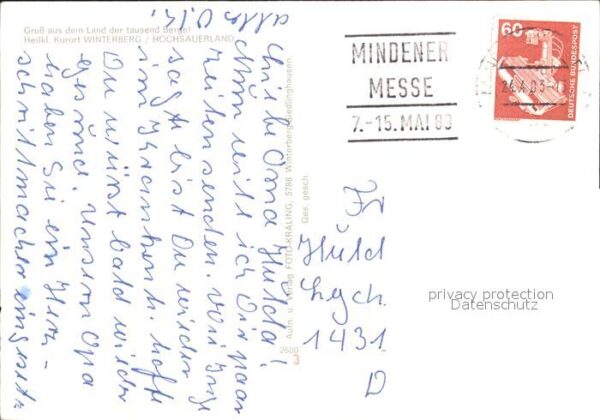 Gruß aus dem Land der tausend Berge!
Heilkl. Kurort WINTERBERG / HOCHSAUERLAND
60
DEUTSCHE BUNDESPOST
MINDENER
MESSE
7.-15. MAI 83
Liebe Oma Hulda!
Nun will ich Dir paar
Zeilen senden. Wie
sagt bist Du wieder
im Krankenh. hoffe
Du wirst bald wieder
gesund. Unsern Opa
haben Sie ein Herz-
schrittmacher eingesetz
alles
Aufn. u. Verlag FOTO-KRALING, 5788 Winterberg-Siedlinghausen
Ges. gesch.
2600
Fr
Huld
1431
D
privacy protection
Datenschutz